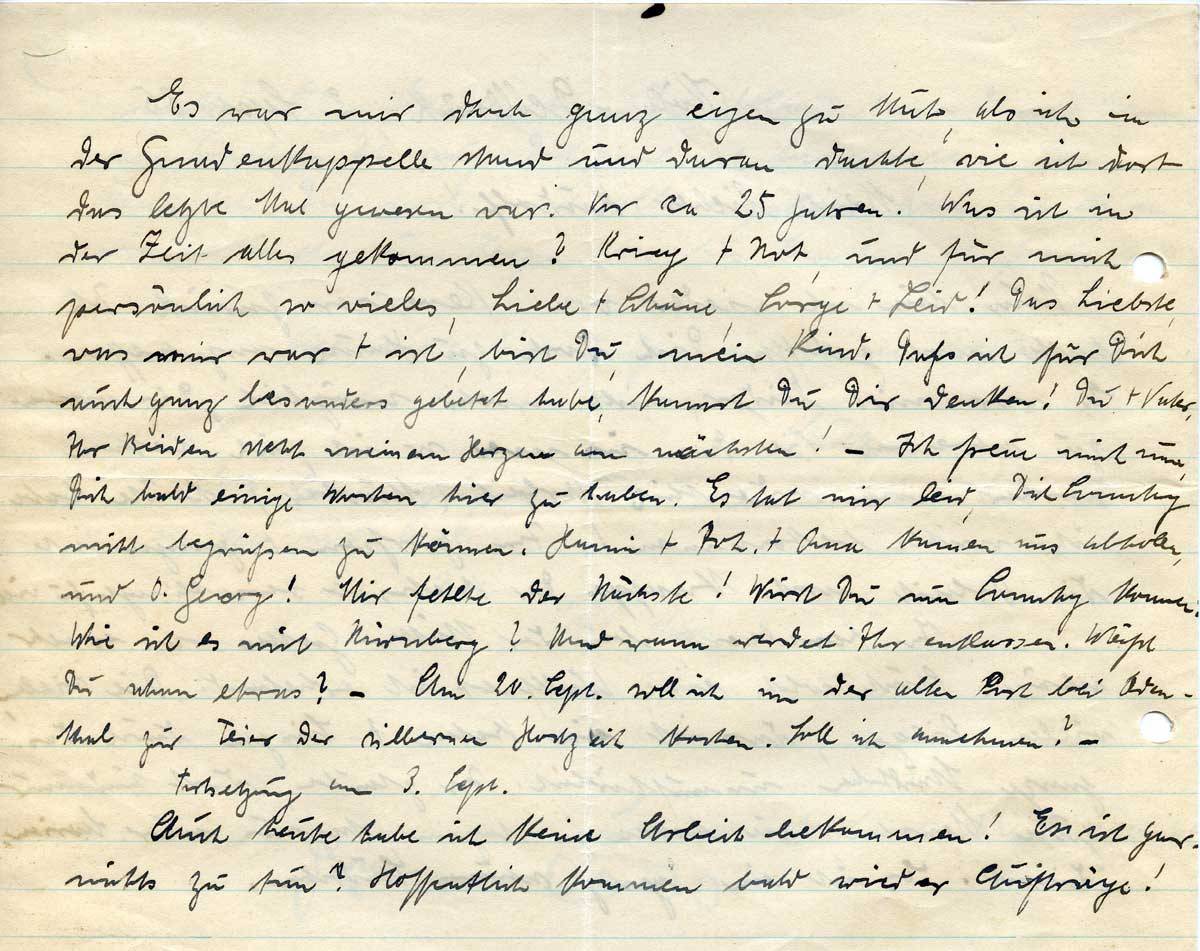 Es war mir doch ganz eigen zu Mut, als ich in
der Gnadenkappelle stand und daran dachte, wie ich dort
das letzte Mal gewesen war. Vor ca 25 Jahren. Was ist in
der Zeit alles gekommen? Krieg + Not, und für mich
persönlich so vieles, Liebe + Schöne, Sorge + Leid! Das Liebste,
was mir war + ist, bist Du, mein Kind. Dass ich für Dich
auch ganz besonders gebetet habe, kannst Du Dir denken! Du + Vater,
Ihr Beiden steht meinem Herzen am nächsten! – Ich freue mich nun,
Dich bald einige Wochen hier zu haben. Es tat mir leid, Dich Sonntag
nicht begrüßen zu können. + Joh. + Oma kamen uns abholen,
und O. Georg! Mir fehlte der Nächste! Wirst Du nun Sonntag kommen.
Wie ist es mit Nürnberg? Und wann werdet Ihr entlassen. Weißt
Du schon etwas? – Am 20. Sept. soll ich in der alten Post bei Oden-
thal zur Feier der silbernen Hochzeit kochen. Soll ich annehmen? –
Fortsetzung am 3. Sept.
Auch heute habe ich keine Arbeit bekommen! Es ist gar
nichts zu tun? Hoffentlich kommen bald wieder Aufträge!